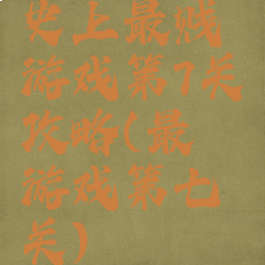 史上最贱
游戏第7关
攻略(最
游戏第七
关)